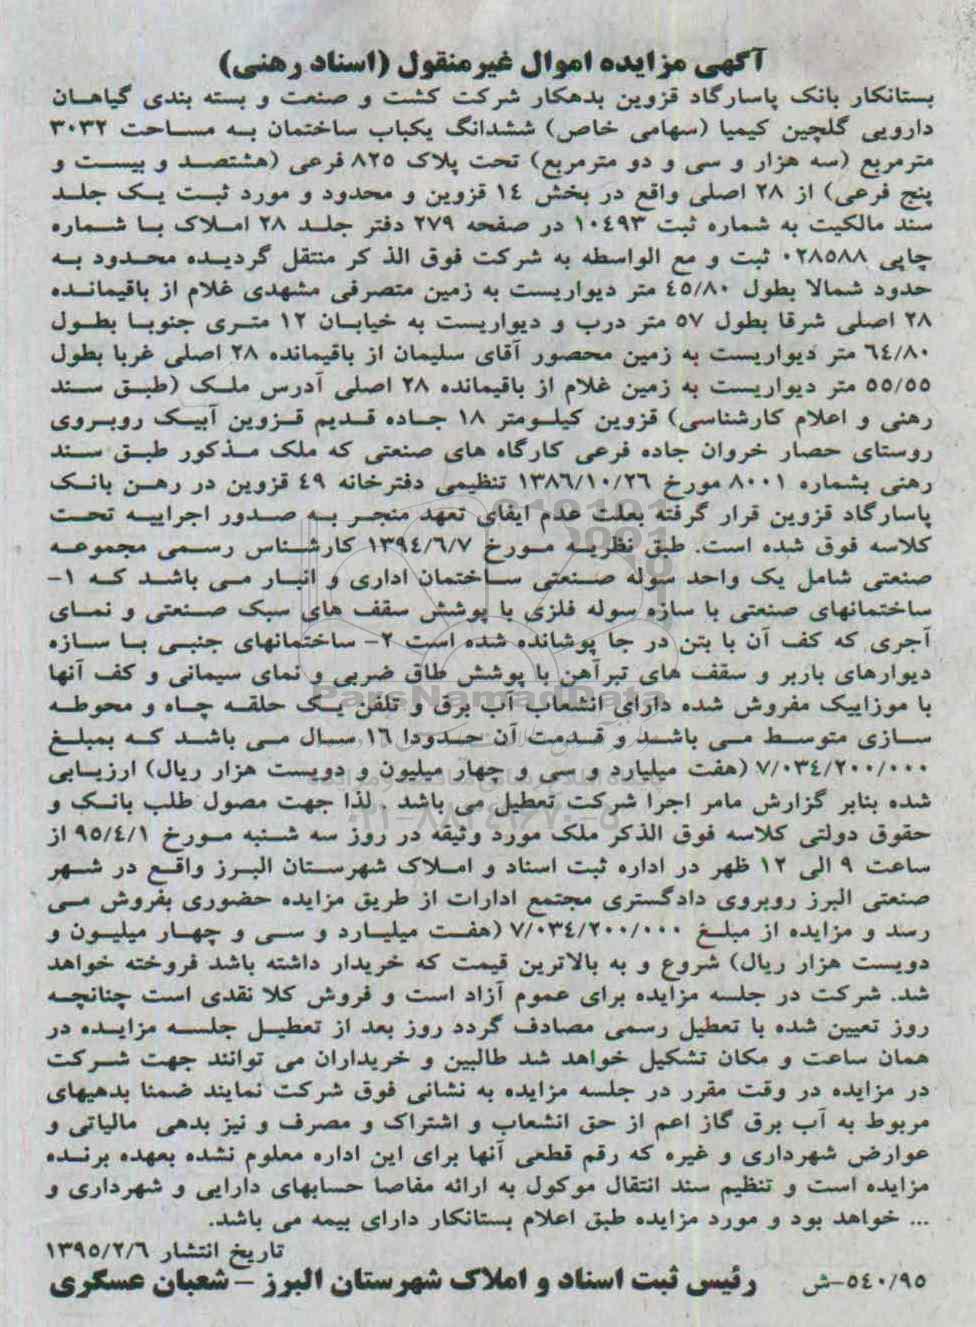 آگهی مزایده اموال غیرمنقول (اسناد رهنی)
بستانکار بانک پاسارگاد قزوین بدهکار شرکت کشت و صنعت و بسته بندی گیاهان
دارویی گلچین کیمیا (سهامی خاص) ششدانگ یکباب ساختمان به مساحت ۳۰۳۲
مترمربع (سه هزار و سی و دو مترمربع) تحت پلاک ۸۲۵ فرعی (هشتصد و بیست و
پنج فرعی) از ۲۸ اصلی واقع در بخش ۱۴ قزوین و محدود و مورد ثبت یک جلد
سند مالکیت به شماره ثبت ۱۰۴۹۳ در صفحه ۲۷۹ دفتر جلد ۲۸ املاک با شماره
چاپی ۰۲۸۵۸۸ ثبت و مع الواسطه به شرکت فوق الذ کر منتقل گردیده محدود به
حدود شمالا بطول ۴۵/۸۰ متر دیواریست به زمین متصرفی مشهدی غلام از باقیمانده
۲۸ اصلی شرقا بطول ۵۷ متر درب و دیواریست به خیابان ۱۲ متری جنوبا بطول
۶۴/۸۰ متر دیواریست به زمین محصور آقای سلیمان از باقیمانده ۲۸ اصلی غربا بطول
۵۵/۵۵ متر دیواریست به زمین غلام از باقیمانده ۲۸ اصلی آدرس ملک (طبق سند
رهنی و اعلام کارشناسی) قزوین کیلومتر ۱۸ جاده قدیم قزوین آبیک روبروی
روستای حصار خروان جاده فرعی کارگاه های صنعتی که ملک مذکور طبق سند
رهنی بشماره ۸۰۰۱ مورخ ۱۳۸۶/۱۰/۲۶ تنظیمی دفترخانه ۴۹ قزوین در رهن بانک
پاسارگاد قزوین قرار گرفته بعلت عدم ایفای تعهد منجر به صدور اجراییه تحت
کلاسه فوق شده است. طبق نظریه مورخ ۱۳۹۴/۶/۷ کارشناس رسمی مجموعه
صنعتی شامل یک واحد سوله صنعتی ساختمان اداری و انبار می باشد که ۱-
ساختمانهای صنعتی با سازه سوله فلزی با پوشش سقف های سبک صنعتی و نمای
آجری که کف آن با بتن در جا پوشانده شده است ۲- ساختمانهای جنبی با سازه
دیوارهای باربر و سقف های تیرآهن با پوشش طاق ضربی و نمای سیمانی و کف آنها
با موزاییک مفروش شده دارای انشعاب آب برق و تلفن یک حلقه چاه و محوطه
سازی متوسط می باشد و قدمت آن حدودا ۱۶ سال می باشد که بمبلغ
۷/۰۳۴/۲۰۰/۰۰۰ (هفت میلیارد و سی و چهار میلیون و دویست هزار ریال) ارزیابی
شده بنابر گزارش مامر اجرا شرکت تعطیل می باشد . لذا جهت مصول طلب بانک و
حقوق دولتی کلاسه فوق الذکر ملک مورد وثیقه در روز سه شنبه مورخ ۹۵/۴/۱ از
ساعت ۹ الی ۱۲ ظهر در اداره ثبت اسناد و املاک شهرستان البرز واقع در شهر
صنعتی البرز روبروی دادگستری مجتمع ادارات از طریق مزایده حضوری بفروش می
رسد و مزایده از مبلغ ۷/۰۳۴/۲۰۰/۰۰۰ (هفت میلیارد و سی و چهار میلیون و
دویست هزار ریال) شروع و به بالاترین قیمت که خریدار داشته باشد فروخته خواهد
شد. شرکت در جلسه مزایده برای عموم آزاد است و فروش کلا نقدی است چنانچه
روز تعیین شده با تعطیل رسمی مصادف گردد روز بعد از تعطیل جلسه مزایده در
همان ساعت و مکان تشکیل خواهد شد طالبین و خریداران می توانند جهت شرکت
در مزایده در وقت مقرر در جلسه مزایده به نشانی فوق شرکت نمایند ضمنا بدهیهای
مربوط به آب برق گاز اعم از حق انشعاب و اشتراک و مصرف و نیز بدهی مالیاتی و
عوارض شهرداری و غیره که رقم قطعی آنها برای این اداره معلوم نشده بعهده برنده
مزایده است و تنظیم سند انتقال موکول به ارائه مفاصا حسابهای دارایی و شهرداری و
... خواهد بود و مورد مزایده طبق اعلام بستانکار دارای بیمه می باشد.
تاریخ انتشار ۱۳۹۵/۲/۶
۵۴۰/۹۵-ش رئیس ثبت اسناد و املاک شهرستان البرز - شعبان عسگری
ParsNamadData
۰۲۱-۸۸۳۴۹۶۷۰-۵